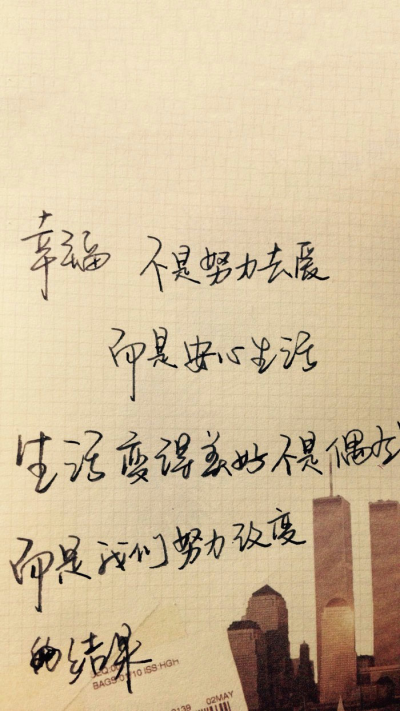 幸福 不是努力去爱
而是安心生活
生活变得美好不是偶然
而是我们努力改变
的结果
BAGS 0/10 ISS:HGH
02MAY